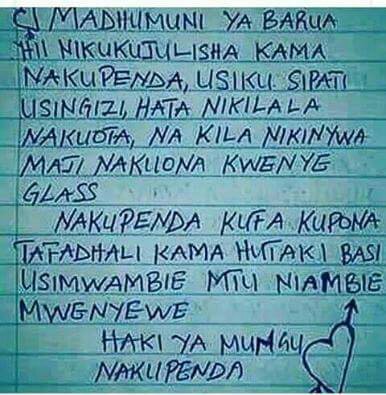 C) MADHUMUNI YA BARUA
HII NIKUKUJULISHA KAMA
NAKUPENDA, USIKU SIPATI
USINGIZI, HATA NIKILALA
NAKUOTA, NA KILA NIKINYWA
MAJI NAKUONA KWENYE
GLASS
NAKUPENDA KUFA KUPONA
TAFADHALI KAMA HUTAKI BASI
USIMWAMBIE MTU NIAMBIE
MWENYEWE
HAKI YA MUNGU
NAKUPENDA